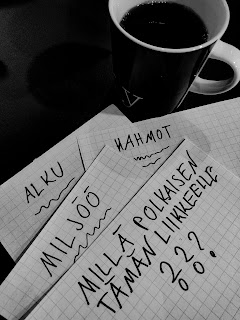 HAHMOT
ALKU
MILJÖÖ
MILLÄ POLKAISEN
TÄMÄN LIIKKEELLE
???